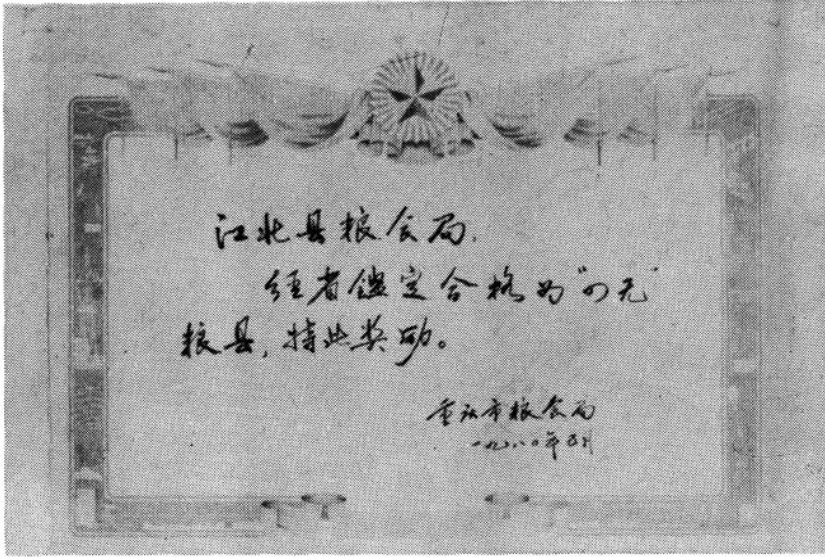 江北县粮食局.
经省鑑定合格为"四无"
粮县，特此奖励。
重庆市粮食局
一九八〇年五月